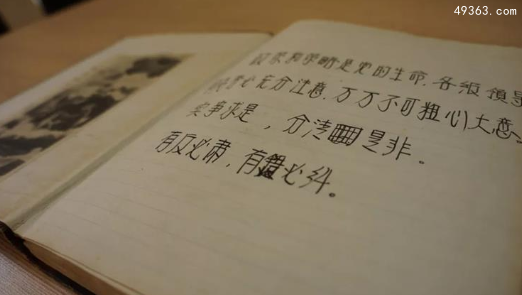 49363.com
政策和策略是党的生命，各级领导
务必充分注意，万万不可粗心大意。
实事求是，分清是非。
有反必肃，有错必纠。